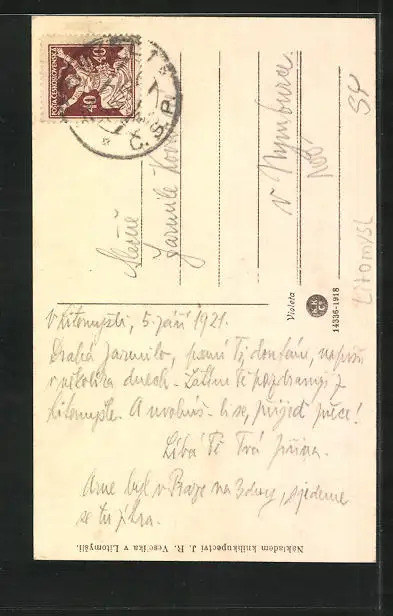 POŠTA ČESKOSLOVENSKÁ
40 40
Č.S.P.
Slečně
Jarmile
v Nymburce.
Litomyšl
Violeta
K.K. Co.
14336-1918
V Litomyšli, 5. září 1921.
Drahá Jarmilo, psaní Ti dostání, napíši
v několika dnech. Zatím Tě pozdravuji z
Litomyšle. A uvolníš-li se, přijeď přece!
Líbá Tě Tvá Jiřina.
Arne byl v Praze na 3 dny, sjedeme
se tu zítra.
Nákladem knihkupectví J. R. Veselíka v Litomyšli.